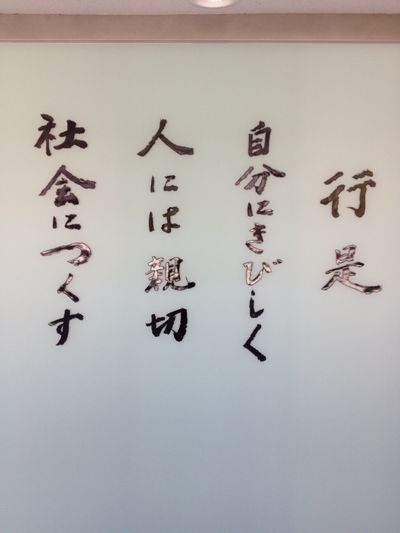 行是
自分にきびしく
人には親切
社会につくす